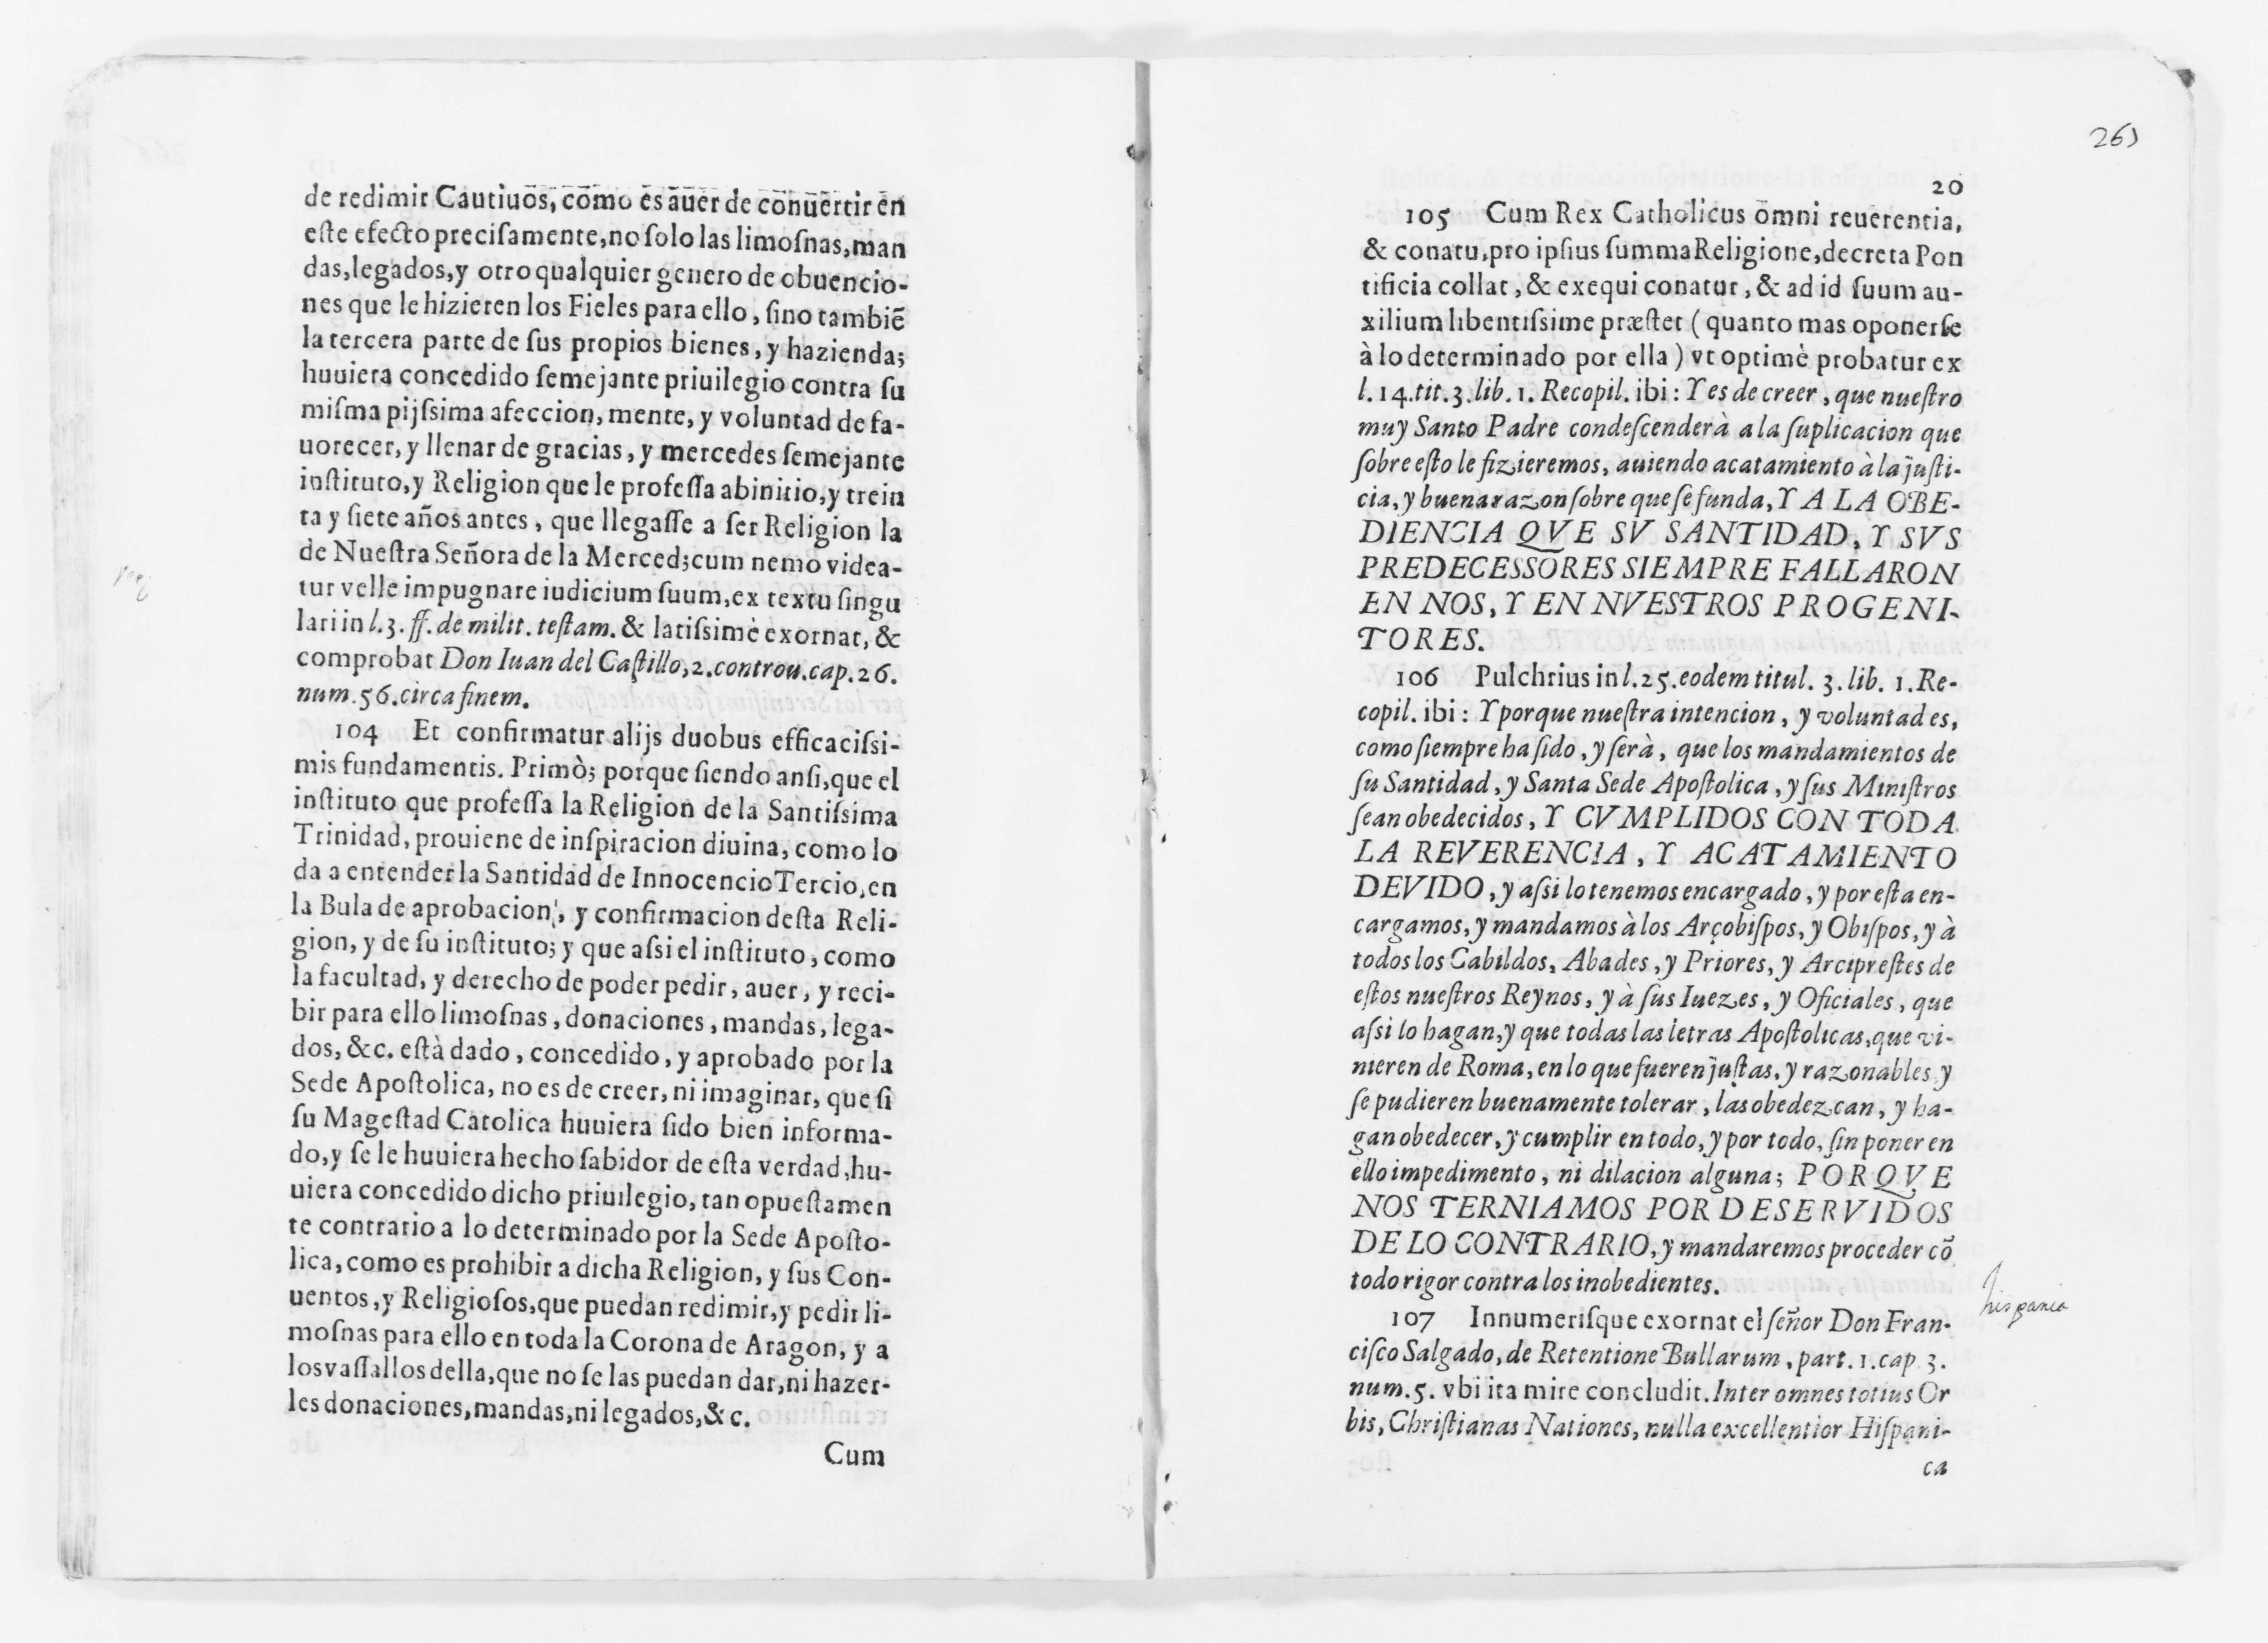 de redimir Cautiuos, como es auer de conuertir en
este efecto precisamente, no solo las limosnas, man
das, legados, y otro qualquier genero de obuencio-
nes que le hizieren los Fieles para ello, sino tambiẽ
la tercera parte de sus propios bienes, y hazienda;
huuiera concedido semejante priuilegio contra su
misma pijssima afeccion, mente, y voluntad de fa-
uorecer, y llenar de gracias, y mercedes semejante
instituto, y Religion que le professa abinitio, y trein
ta y siete años antes, que llegasse a ser Religion la
de Nuestra Señora de la Merced; cum nemo videa-
tur velle impugnare iudicium suum, ex textu singu
lari in l. 3. ff. de milit. testam. & latissimè exornat, &
comprobat Don Iuan del Castillo, 2. controu. cap. 26.
num. 56. circa finem.
104 Et confirmatur alijs duobus efficacissi-
mis fundamentis. Primò; porque siendo ansi, que el
instituto que professa la Religion de la Santissima
Trinidad, prouiene de inspiracion diuina, como lo
da a entender la Santidad de Innocencio Tercio, en
la Bula de aprobacion, y confirmacion desta Reli-
gion, y de su instituto; y que assi el instituto, como
la facultad, y derecho de poder pedir, auer, y reci-
bir para ello limosnas, donaciones, mandas, lega-
dos, &c. està dado, concedido, y aprobado por la
Sede Apostolica, no es de creer, ni imaginar, que si
su Magestad Catolica huuiera sido bien informa-
do, y se le huuiera hecho sabidor de esta verdad, hu-
uiera concedido dicho priuilegio, tan opuestamen
te contrario a lo determinado por la Sede Aposto-
lica, como es prohibir a dicha Religion, y sus Con-
uentos, y Religiosos, que puedan redimir, y pedir li-
mosnas para ello en toda la Corona de Aragon, y a
los vassallos della, que no se las puedan dar, ni hazer-
les donaciones, mandas, ni legados, &c.
Cum
261
20
105 Cum Rex Catholicus omni reuerentia,
& conatu, pro ipsius summa Religione, decreta Pon
tificia collat, & exequi conatur, & ad id suum au-
xilium libentissime præstet (quanto mas oponerse
à lo determinado por ella) vt optimè probatur ex
l. 14. tit. 3. lib. 1. Recopil. ibi: Y es de creer, que nuestro
muy Santo Padre condescenderà a la suplicacion que
sobre esto le fizieremos, auiendo acatamiento à la justi-
cia, y buena razon sobre que se funda, Y A LA OBE-
DIENCIA QVE SV SANTIDAD, Y SVS
PREDECESSORES SIEMPRE FALLARON
EN NOS, Y EN NVESTROS PROGENI-
TORES.
106 Pulchrius in l. 25. eodem titul. 3. lib. 1. Re-
copil. ibi: Y porque nuestra intencion, y voluntad es,
como siempre ha sido, y serà, que los mandamientos de
su Santidad, y Santa Sede Apostolica, y sus Ministros
sean obedecidos, Y CVMPLIDOS CON TODA
LA REVERENCIA, Y ACATAMIENTO
DEVIDO, y assi lo tenemos encargado, y por esta en-
cargamos, y mandamos à los Arçobispos, y Obispos, y à
todos los Cabildos, Abades, y Priores, y Arciprestes de
estos nuestros Reynos, y à sus Iuezes, y Oficiales, que
assi lo hagan, y que todas las letras Apostolicas, que vi-
nieren de Roma, en lo que fueren justas, y razonables, y
se pudieren buenamente tolerar, las obedezcan, y ha-
gan obedecer, y cumplir en todo, y por todo, sin poner en
ello impedimento, ni dilacion alguna; PORQVE
NOS TERNIAMOS POR DESERVIDOS
DE LO CONTRARIO, y mandaremos proceder cõ
todo rigor contra los inobedientes.
107 Innumerisque exornat el señor Don Fran-
cisco Salgado, de Retentione Bullarum, part. 1. cap. 3.
num. 5. vbi ita mire concludit. Inter omnes totius Or
bis, Christianas Nationes, nulla excellentior Hispani-
hispania
ca